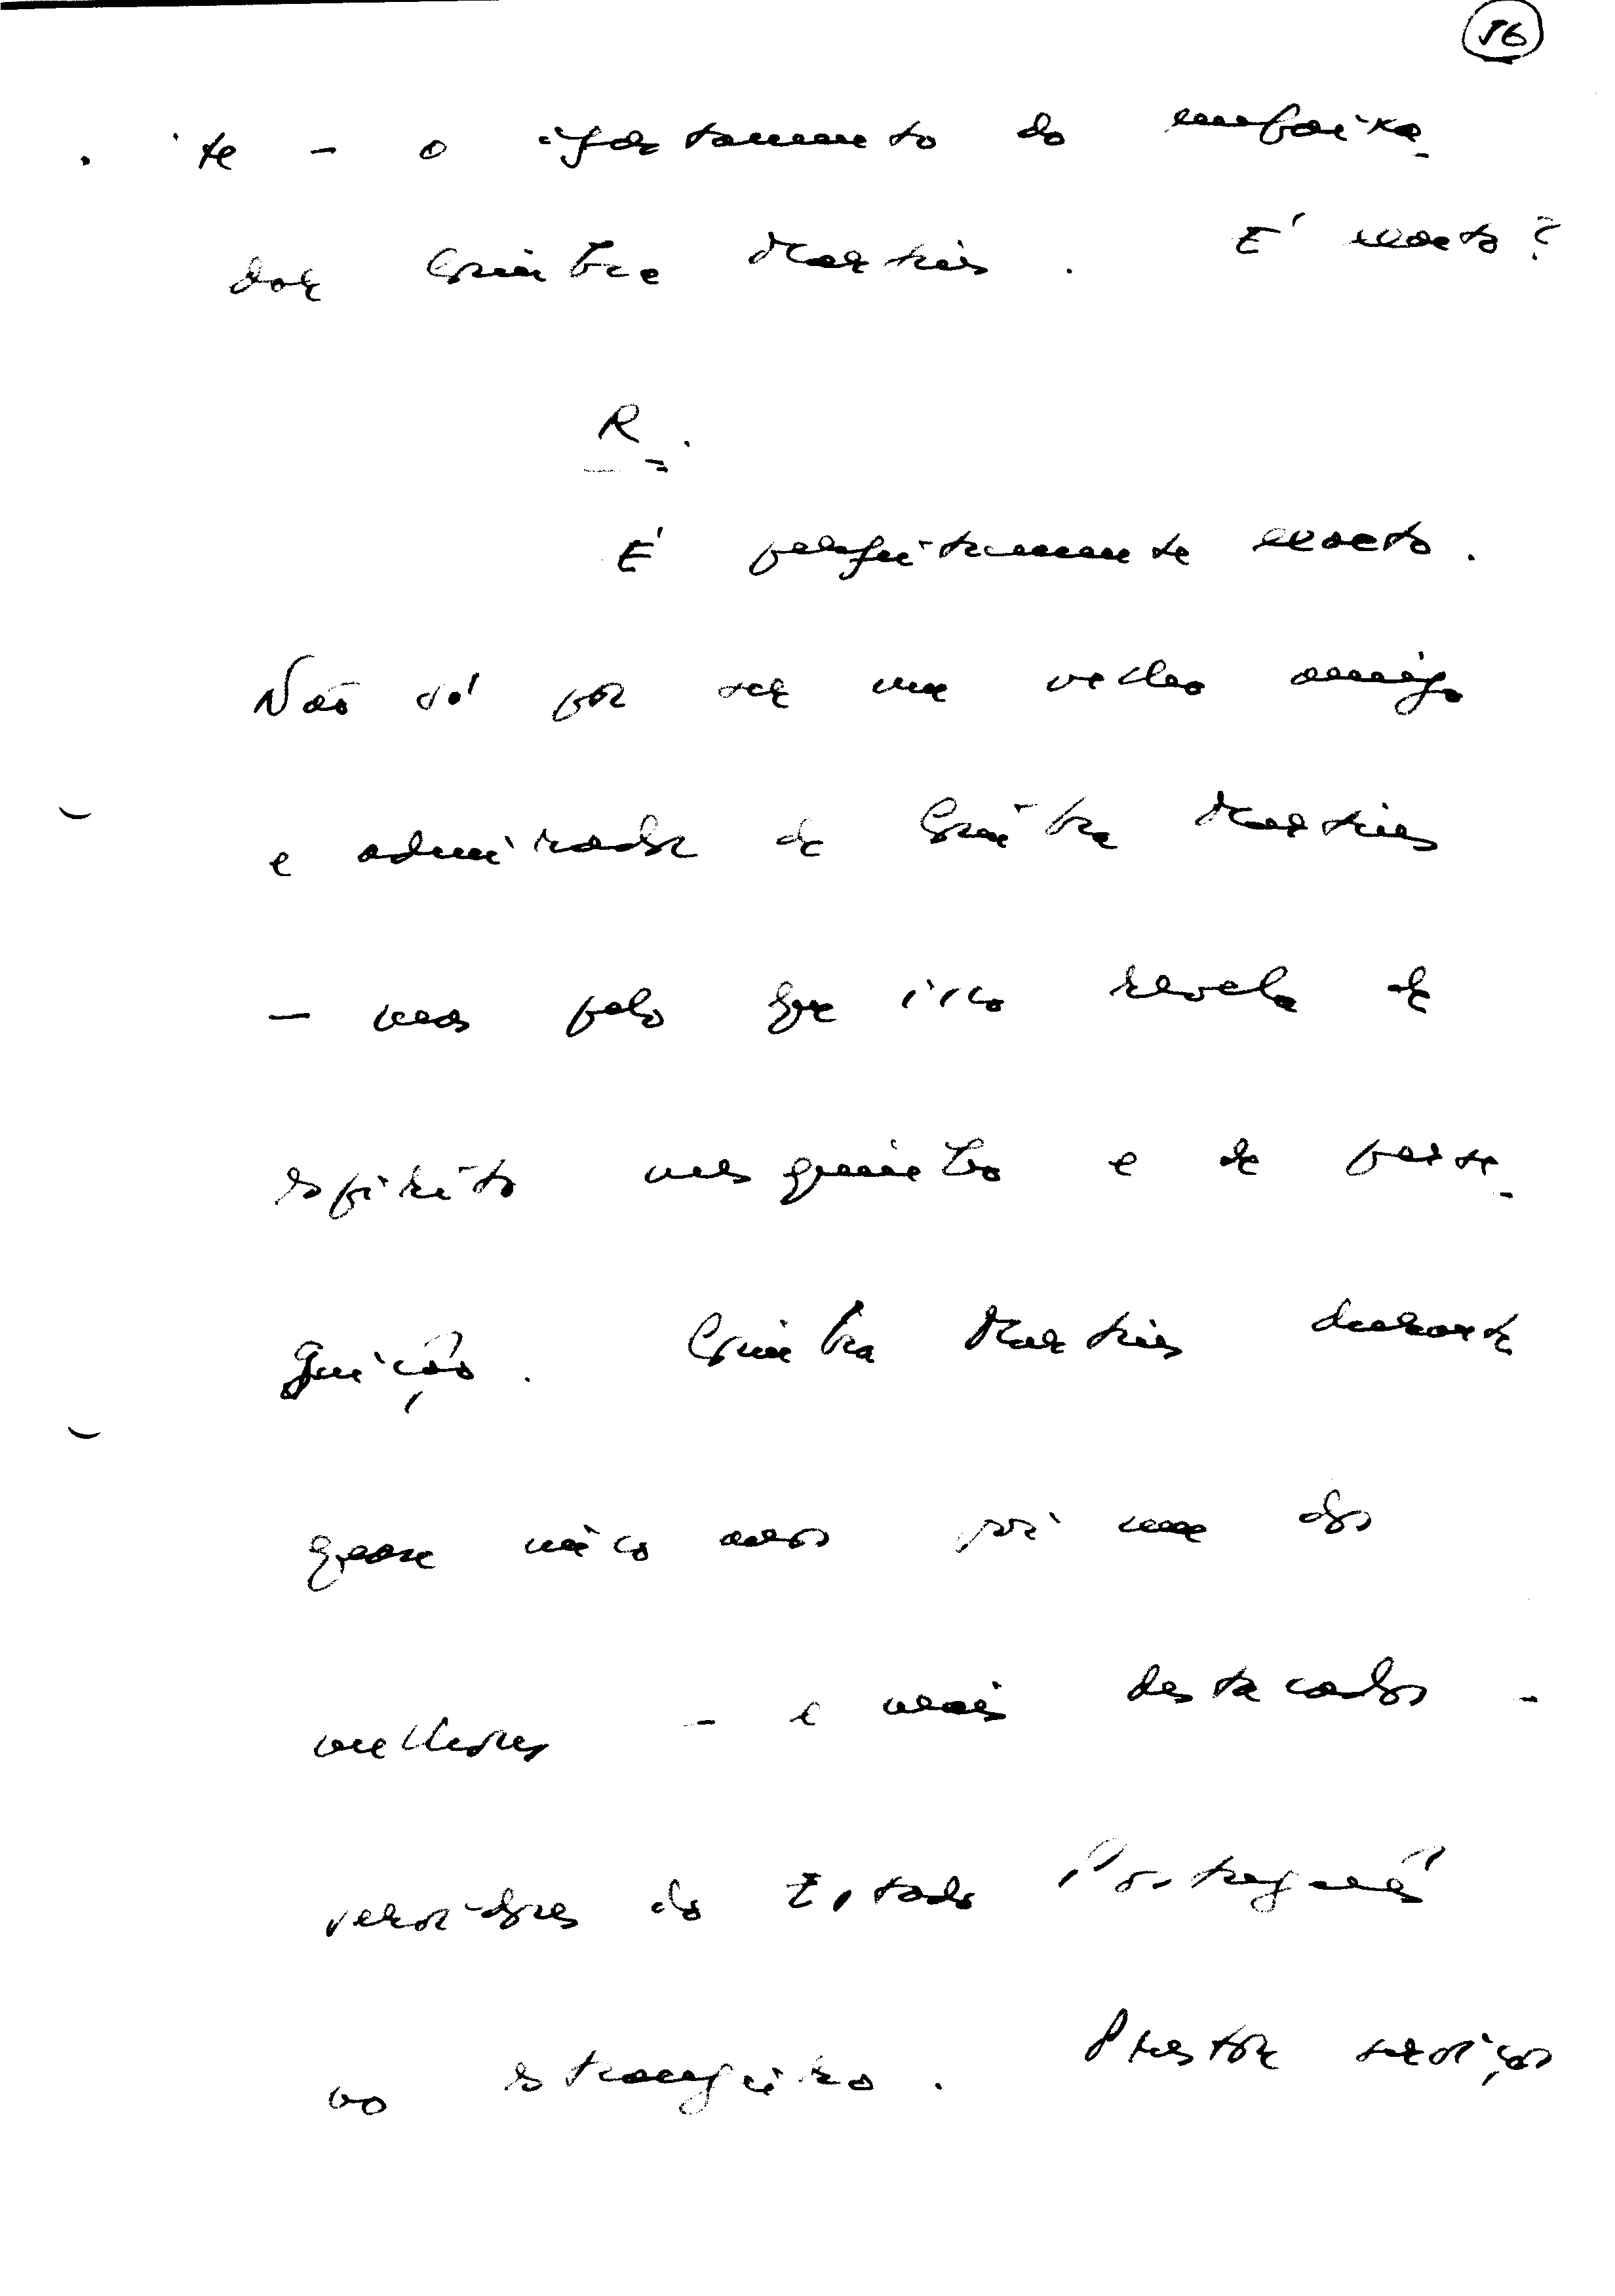 56
te - o afastamento do embaixa-
dor Coimbra Martins. É exacto?
R.
É perfeitamente exacto.
Não só por ser um velho amigo
e admirador de Coimbra Martins
- mas pelo que isso revela de
espírito mesquinho e de perse-
guição. Coimbra Martins durante
quase anos foi um dos
melhores - e mais destacados -
servidores do Estado Português
no estrangeiro. Prestou serviços